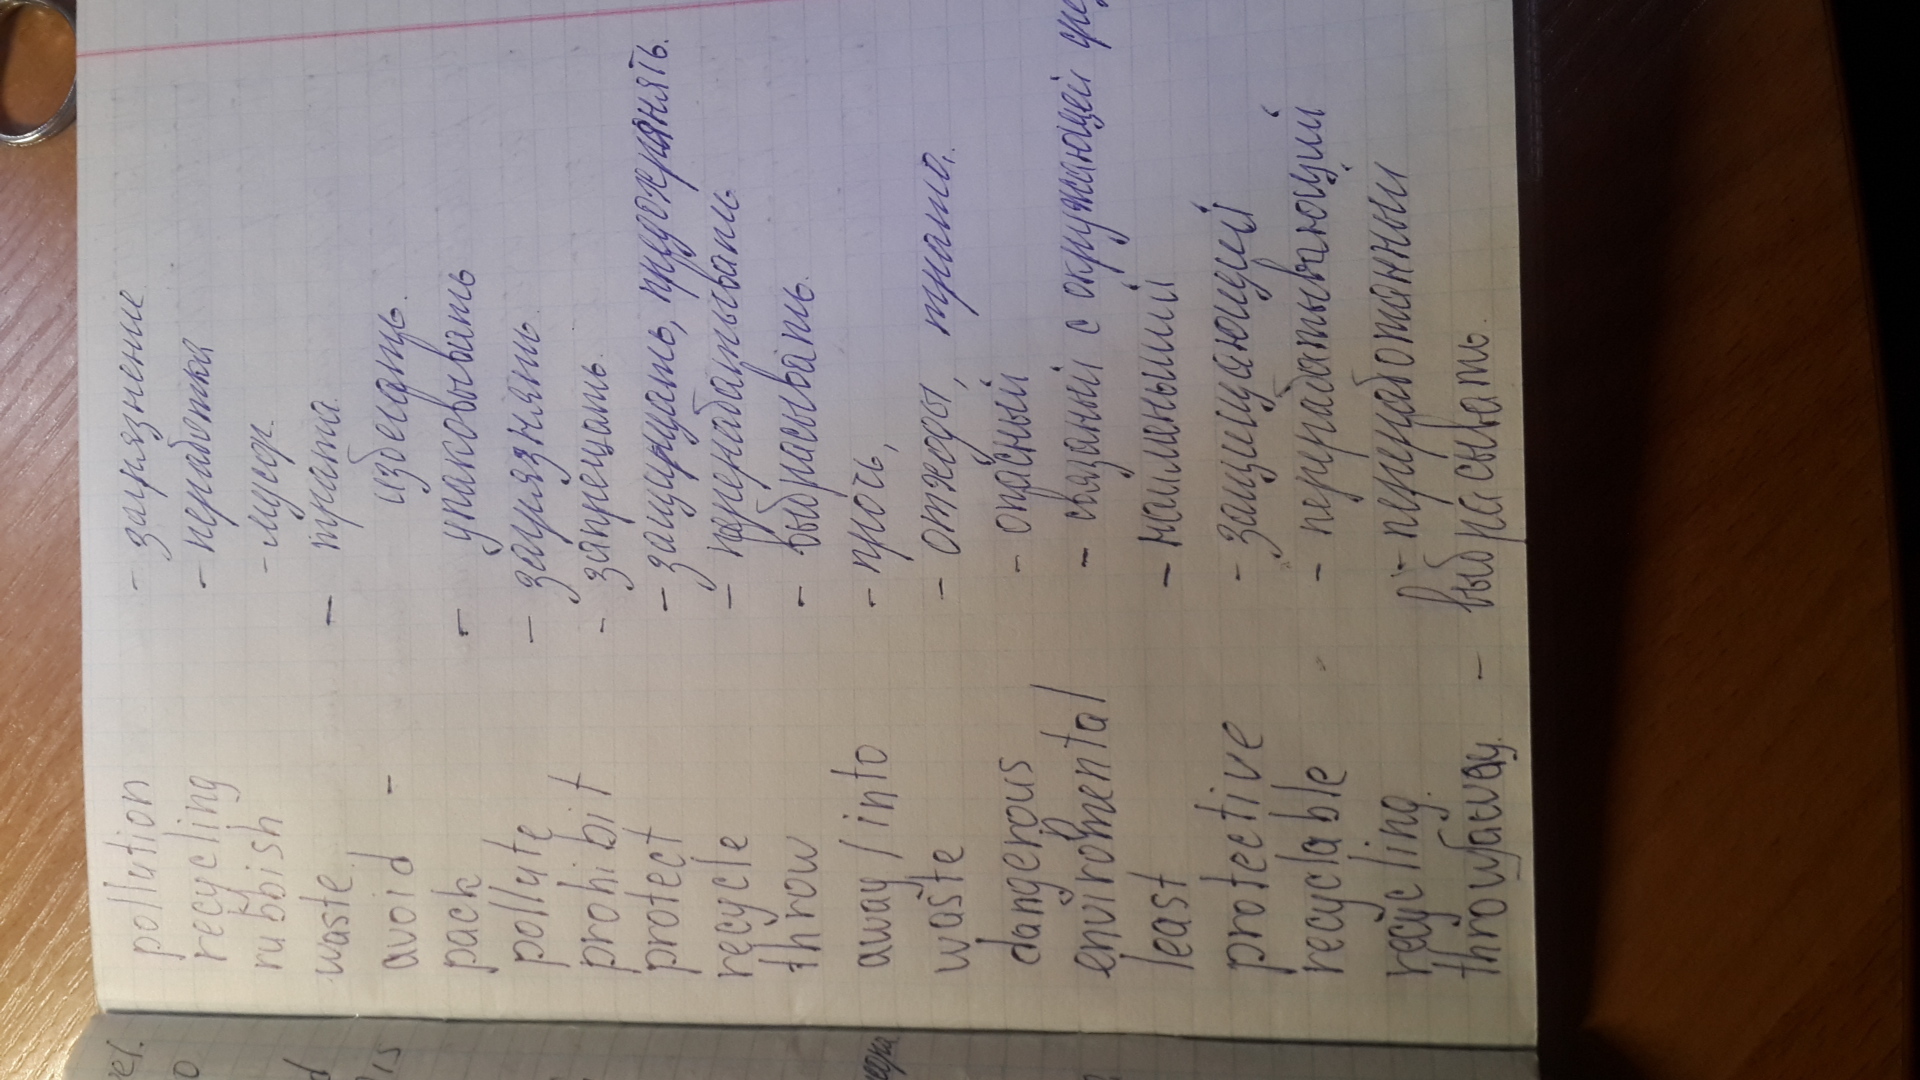 pollution - загрязнение
recycling - пеработка
rubbish - мусор.
waste - трата.
avoid - избегать.
pack - упаковывать
pollute - загрязнять.
prohibit - запрещать.
protect - защищать, предохранять.
recycle - перерабатывать
throw - выбрасывать.
away / into - прочь,
waste - отходы, трата.
dangerous - опасный
enviromental - связаный с окружающей
least - наименьший
protective - защищающий
recyclable - перерабатывающий
recycling. - переработанный
throwaway. - выбрасывать.